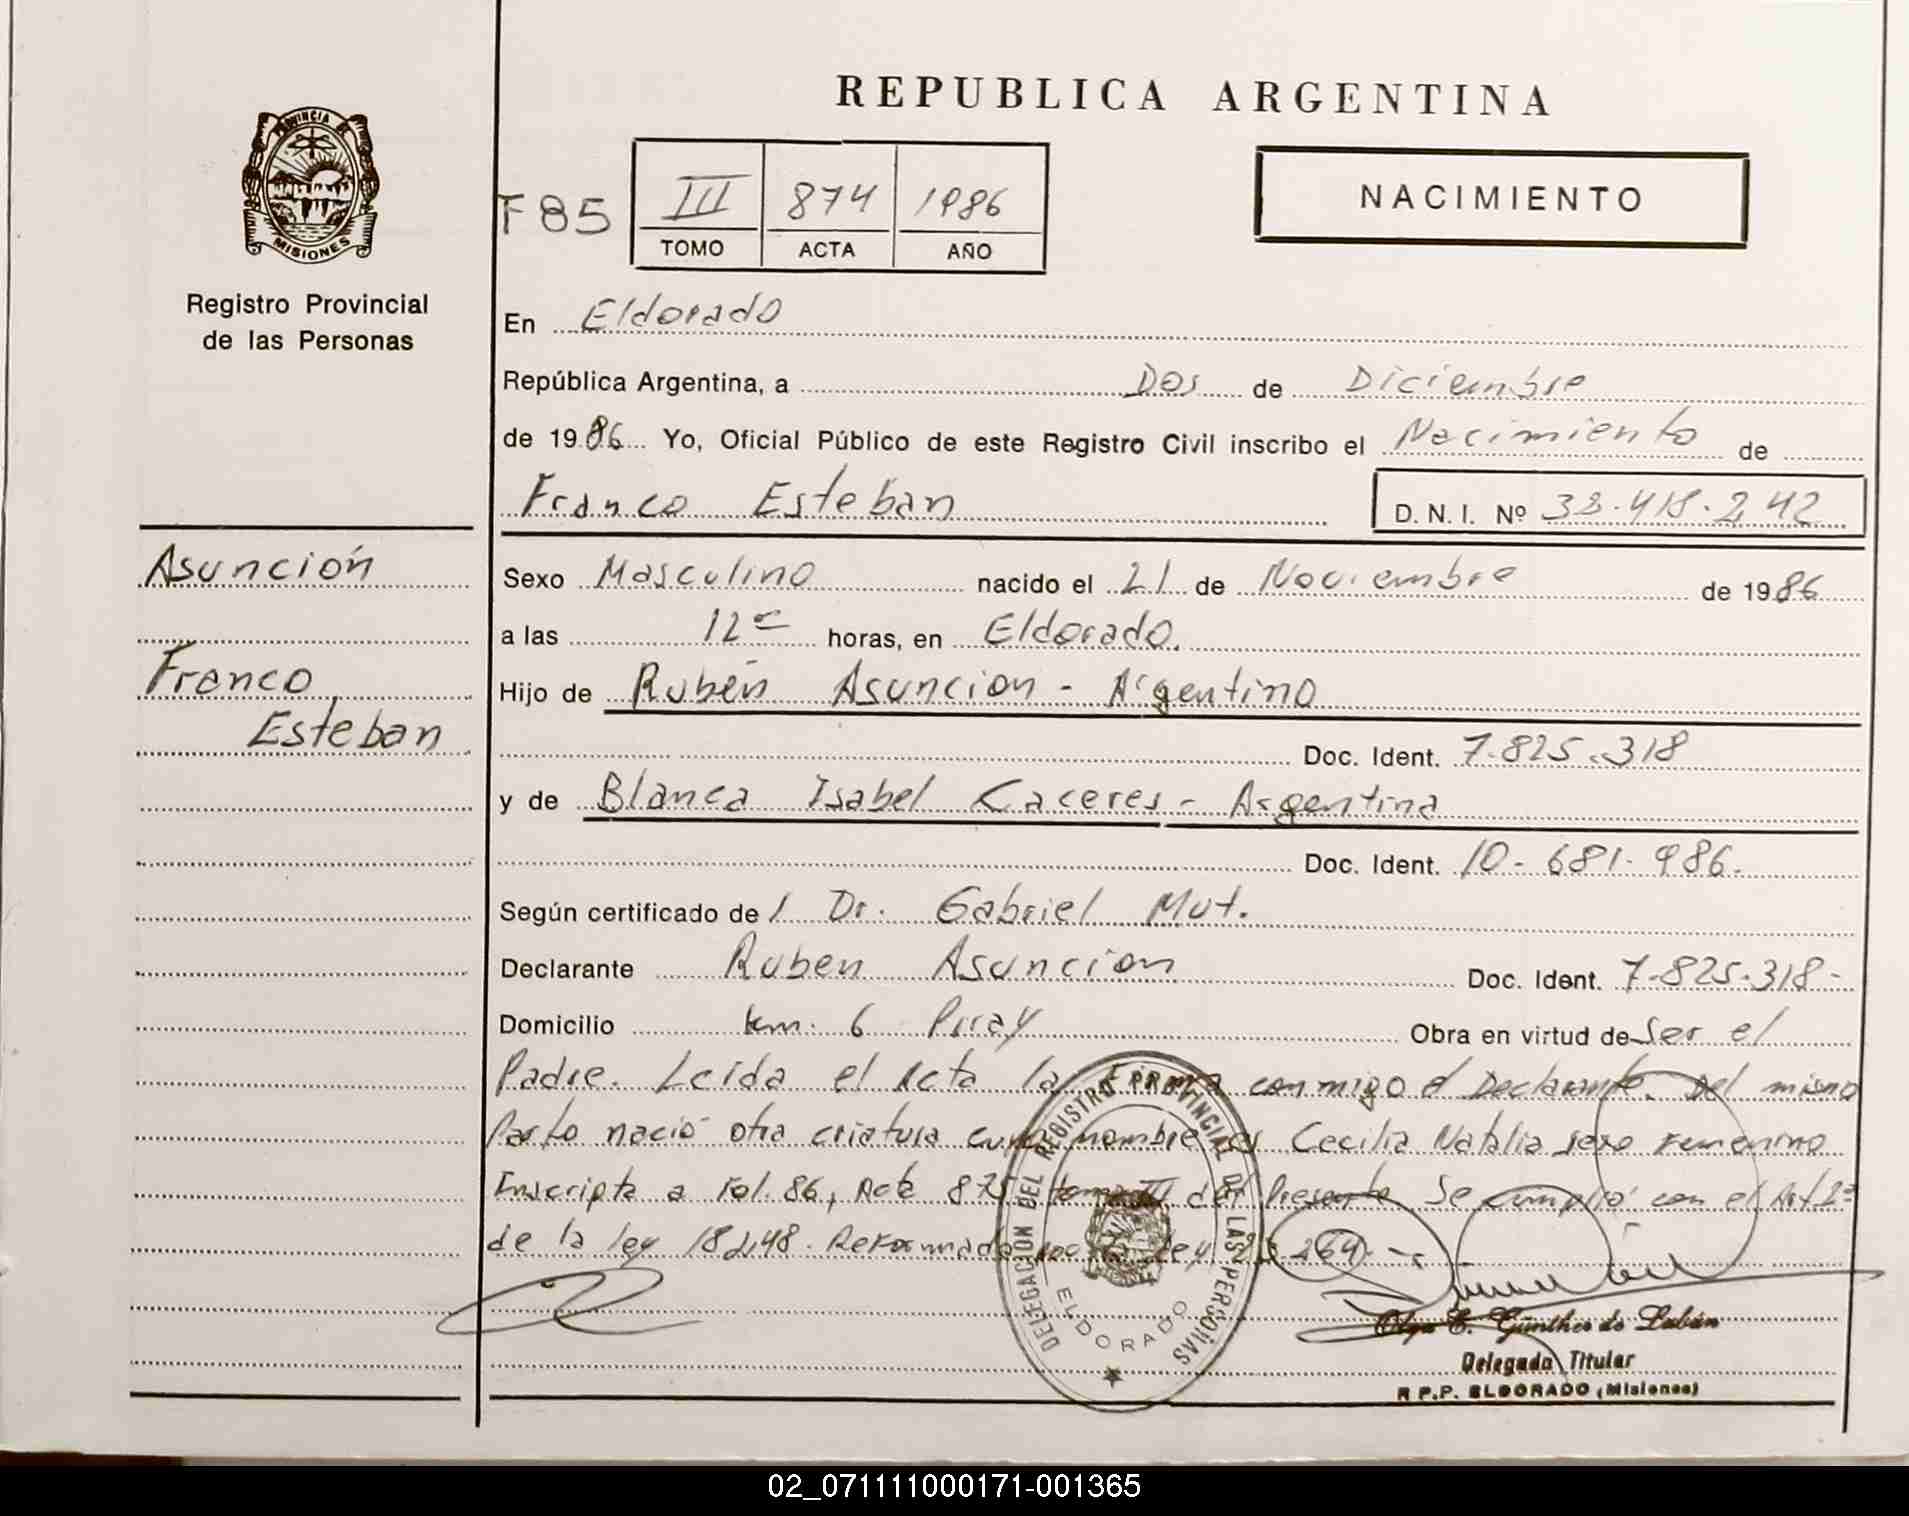 REPUBLICA ARGENTINA
PROVINCIA DE
MISIONES
Registro Provincial
de las Personas
F 85
III 874 1986
TOMO ACTA AÑO
NACIMIENTO
En Eldorado
República Argentina, a Dos de Diciembre
de 1986 Yo, Oficial Público de este Registro Civil inscribo el Nacimiento de
Franco Esteban D. N. I. Nº 32.418.242
Asunción
Franco
Esteban
Sexo Masculino nacido el 21 de Noviembre de 1986
a las 12 horas, en Eldorado.
Hijo de Rubén Asuncion - Argentino
Doc. Ident. 7.825.318
y de Blanca Isabel Caceres - Argentina
Doc. Ident. 10-681-986.
Según certificado de Dr. Gabriel Mut.
Declarante Ruben Asuncion Doc. Ident. 7-825-318-
Domicilio km. 6 Piray Obra en virtud de Ser el
Padre. Leida el Acta la Firma conmigo el Declarante. Del mismo
Parto nació otra criatura cuyo nombre es Cecilia Natalia sexo Femenino
Inscripta a Fol. 86, Acta 875 tomo III del Presente Se cumplió con el Art 2º
de la ley 18248. Reformada por la Ley 264
DELEGACION DEL REGISTRO PROVINCIAL DE LAS PERSONAS
ELDORADO
Olga E. Günther de Lubán
Delegada Titular
R.P.P. ELDORADO (Misiones)
02_071111000171-001365